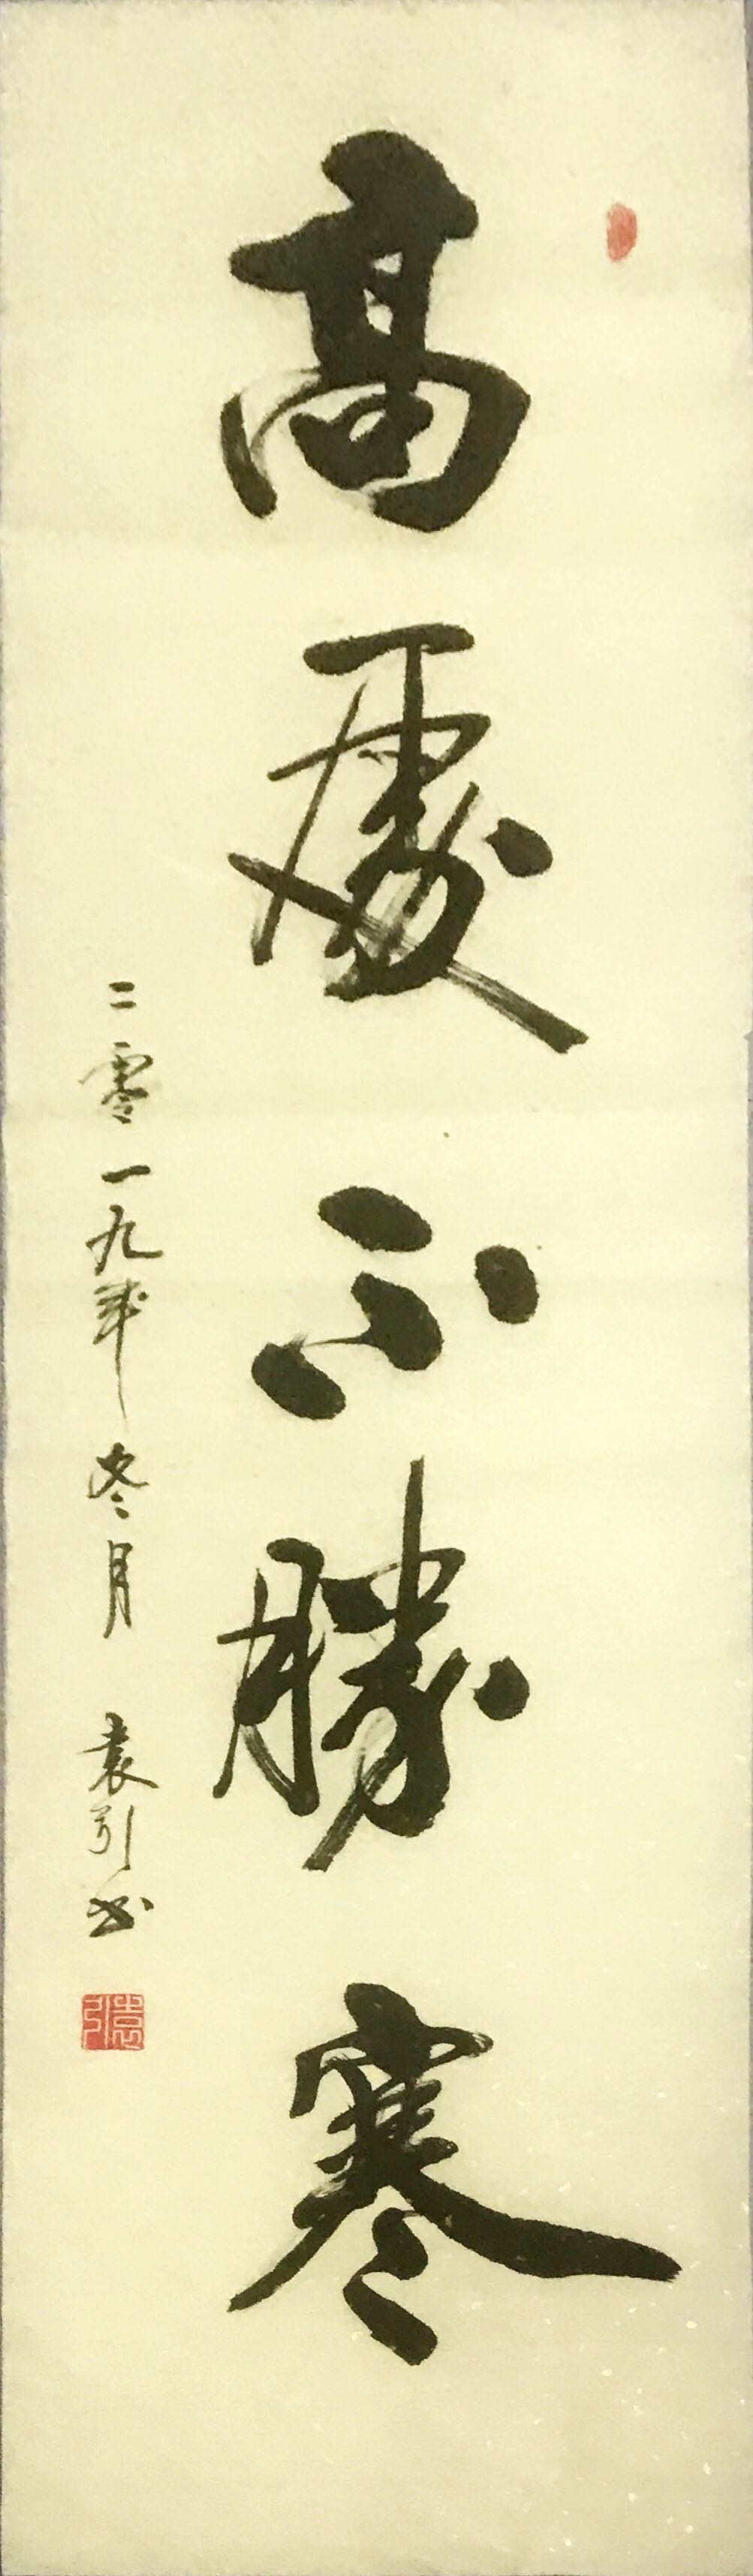 高處不勝寒
二零一九年冬月 袁引书
袁引